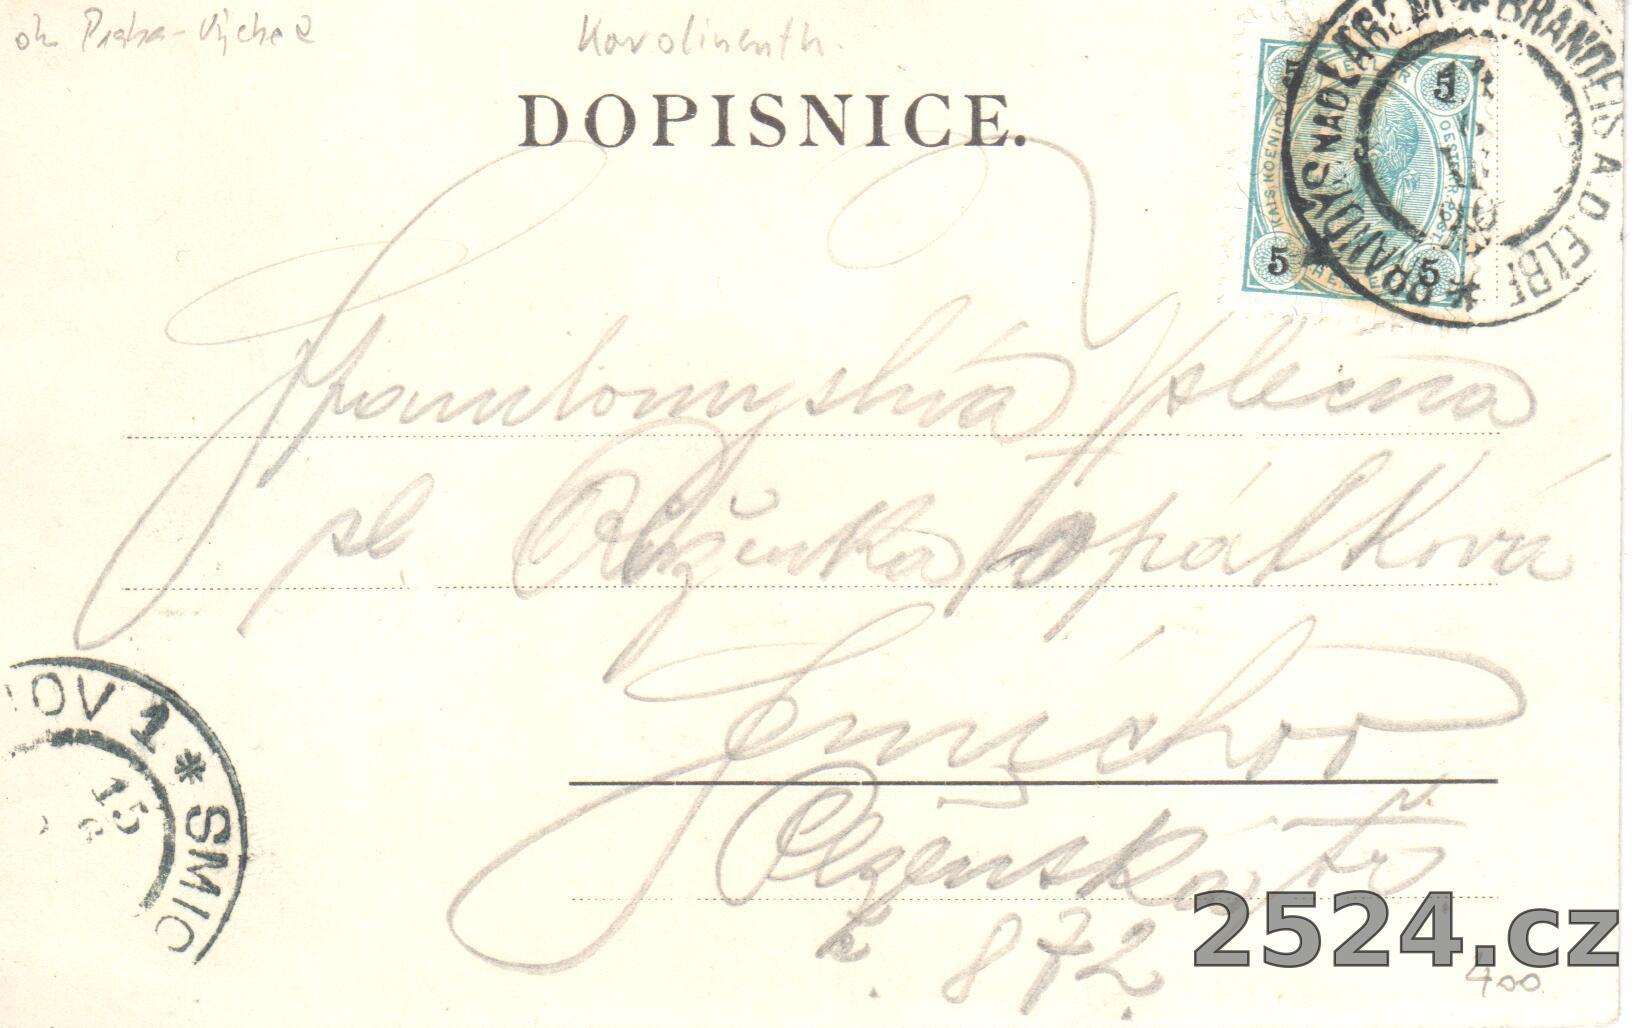 ok. Praha-Východ
Karolinenth.
DOPISNICE.
BRANDÝS NAD LABEM * BRANDEIS A.D. ELBE *
5 5
KAIS. KOENIGL. OESTERR. POST.
5 5
Spanilomyslná slečna
sl. Růženka Opátková
Smíchov
Plzeňská tř.
č. 872.
OV 1 * SMIC
15
2524.cz
400